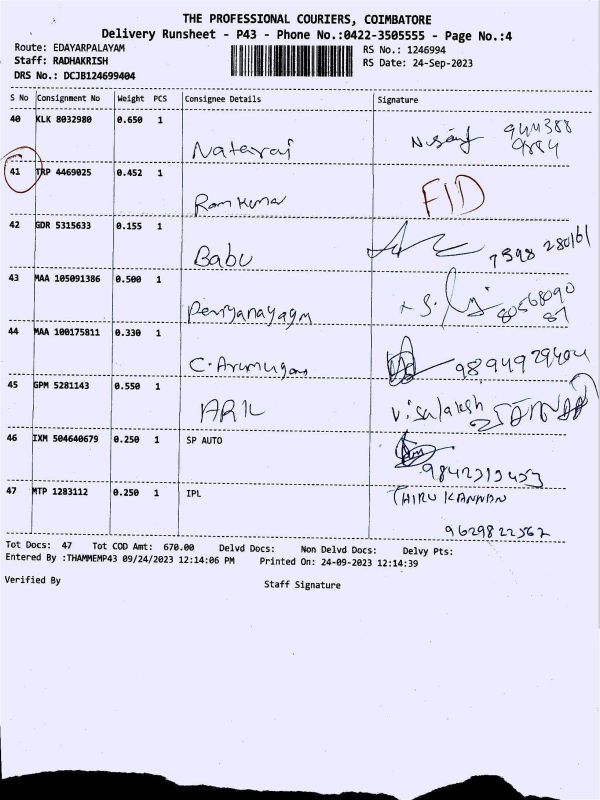 THE PROFESSIONAL COURIERS, COIMBATORE
Delivery Runsheet - P43 - Phone No.:0422-3505555 - Page No.:4
Route: EDAYARPALAYAM
Staff: RADHAKRISH
DRS No.: DCJB124699404
RS No.: 1246994
RS Date: 24-Sep-2023
S No Consignment No Weight PCS Consignee Details Signature
40 KLK 8032980 0.650 1
Nataraj
944388
9884
41 TRP 4469025 0.452 1
Ramkumar
FID
42 GDR 5315633 0.155 1
Babu
7598 280161
43 MAA 105091386 0.500 1
Periyanayagm
80568090
87
44 MAA 100175811 0.330 1
C. Arumugam
9894929404
45 GPM 5281143 0.550 1
ARIL
Visalaksh
46 IXM 504640679 0.250 1 SP AUTO
9842313453
47 MTP 1283112 0.250 1 IPL
THIRU KANNAN
9629822562
Tot Docs: 47 Tot COD Amt: 670.00 Delvd Docs: Non Delvd Docs: Delvy Pts:
Entered By :THAMMEMP43 09/24/2023 12:14:06 PM Printed On: 24-09-2023 12:14:39
Verified By Staff Signature